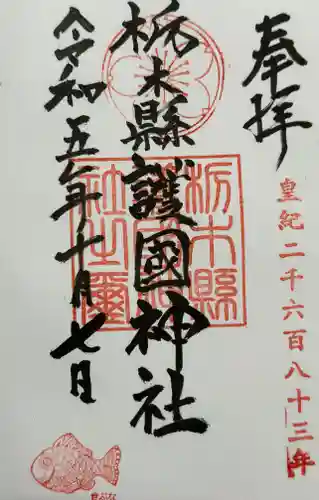 奉拝
皇紀二千六百八十三年
栃木縣護國神社
令和五年十月七日
栃木縣
護國神
社之璽